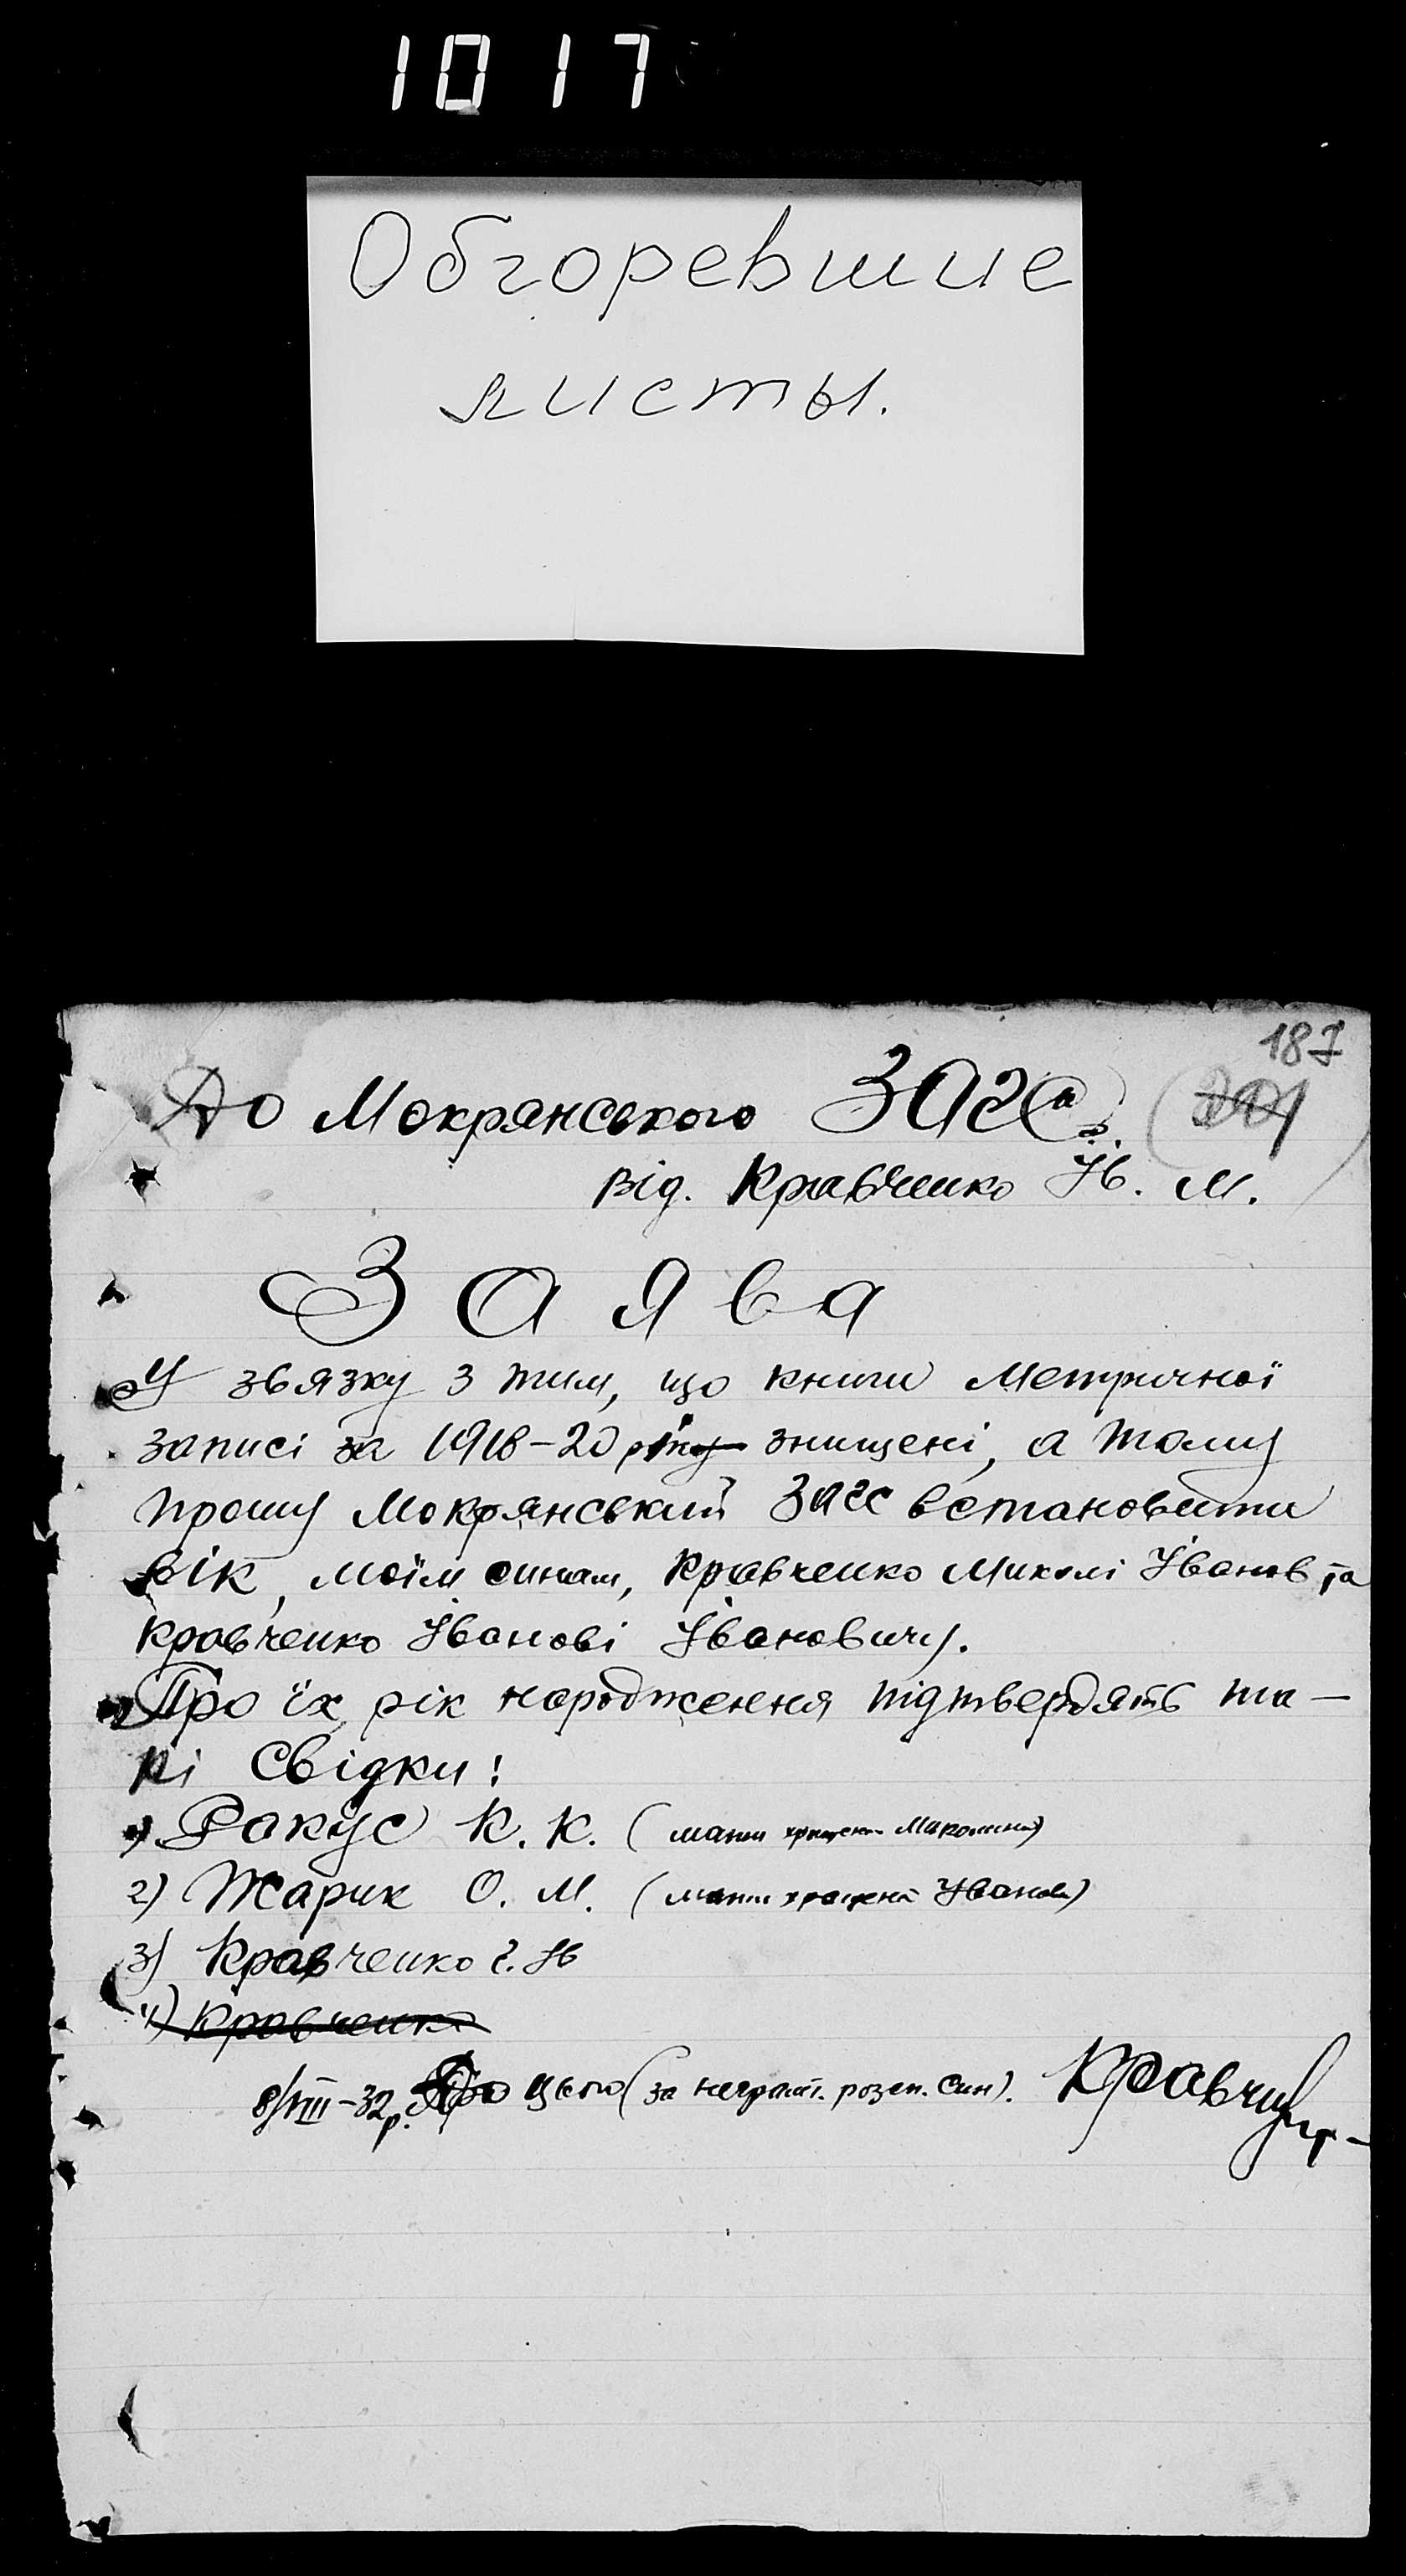 1017
Обгоревшие
листы.
187
До Мокрянського ЗАГСа
Від. Кравченко Ів. М.
Заява
У звязку з тим, що книги метричної
записі за 1918-20 року знищені, а тому
прошу Мокрянський ЗАГС встановити
вік, моїм синам, Кравченко Миколі Іванов та
Кравченко Іванові Івановичу.
Про їх рік народження підтвердять та-
кі свідки:
1) Ракус К. К. (мати хрещена Миколина)
2) Жарик О. М. (мати хрещена Іванова)
3) Кравченко Г. Ів
4) Кравченко
8/VIII-32р. До цього (за неграмт. розп. син).